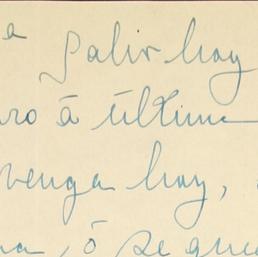 a salir hoy
ro á última
venga hoy,
na, ó se que